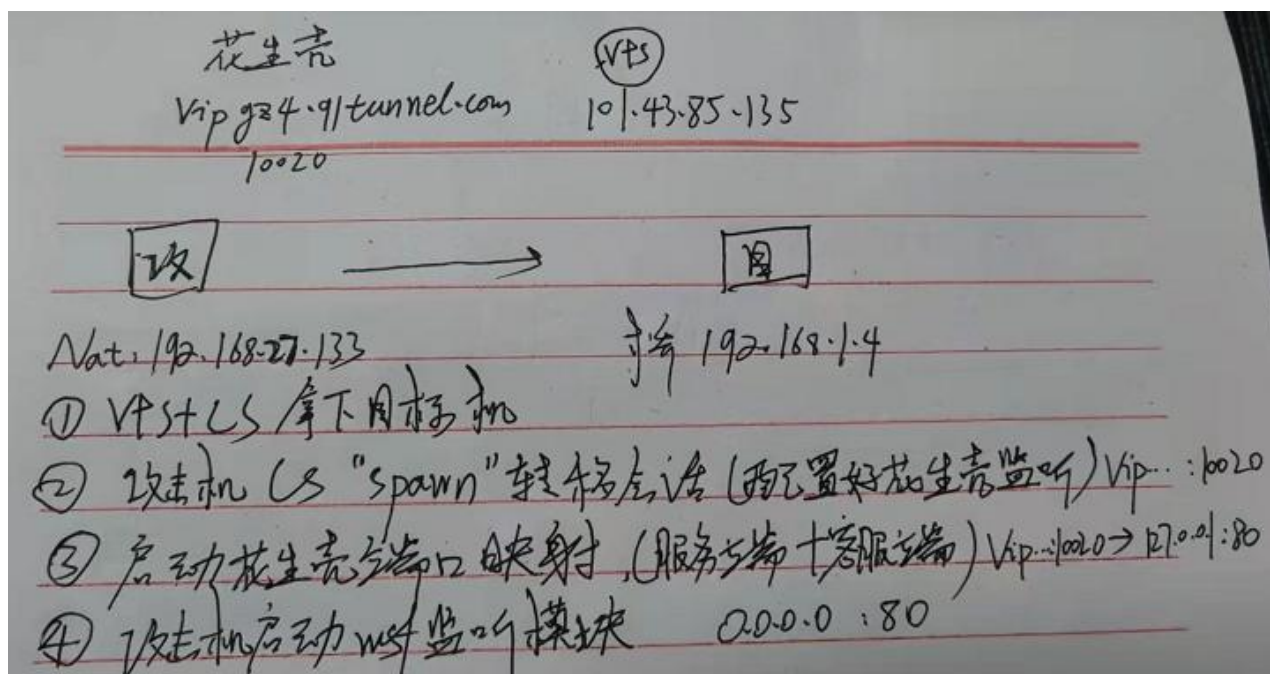 花生壳 vps
vipgz4.91tunnel.com 101.43.85.135
10020
攻 目
Nat: 192.168.27.133 桥 192.168.1.4
① VPS+CS 拿下目标机
② 攻击机 CS "spawn" 转移会话 (配置好花生壳监听) Vip... :10020
③ 启动花生壳端口映射,(服务端+客服端) Vip...:10020→127.0.0.1:80
④ 攻击机启动 msf 监听模块 0.0.0.0 :80